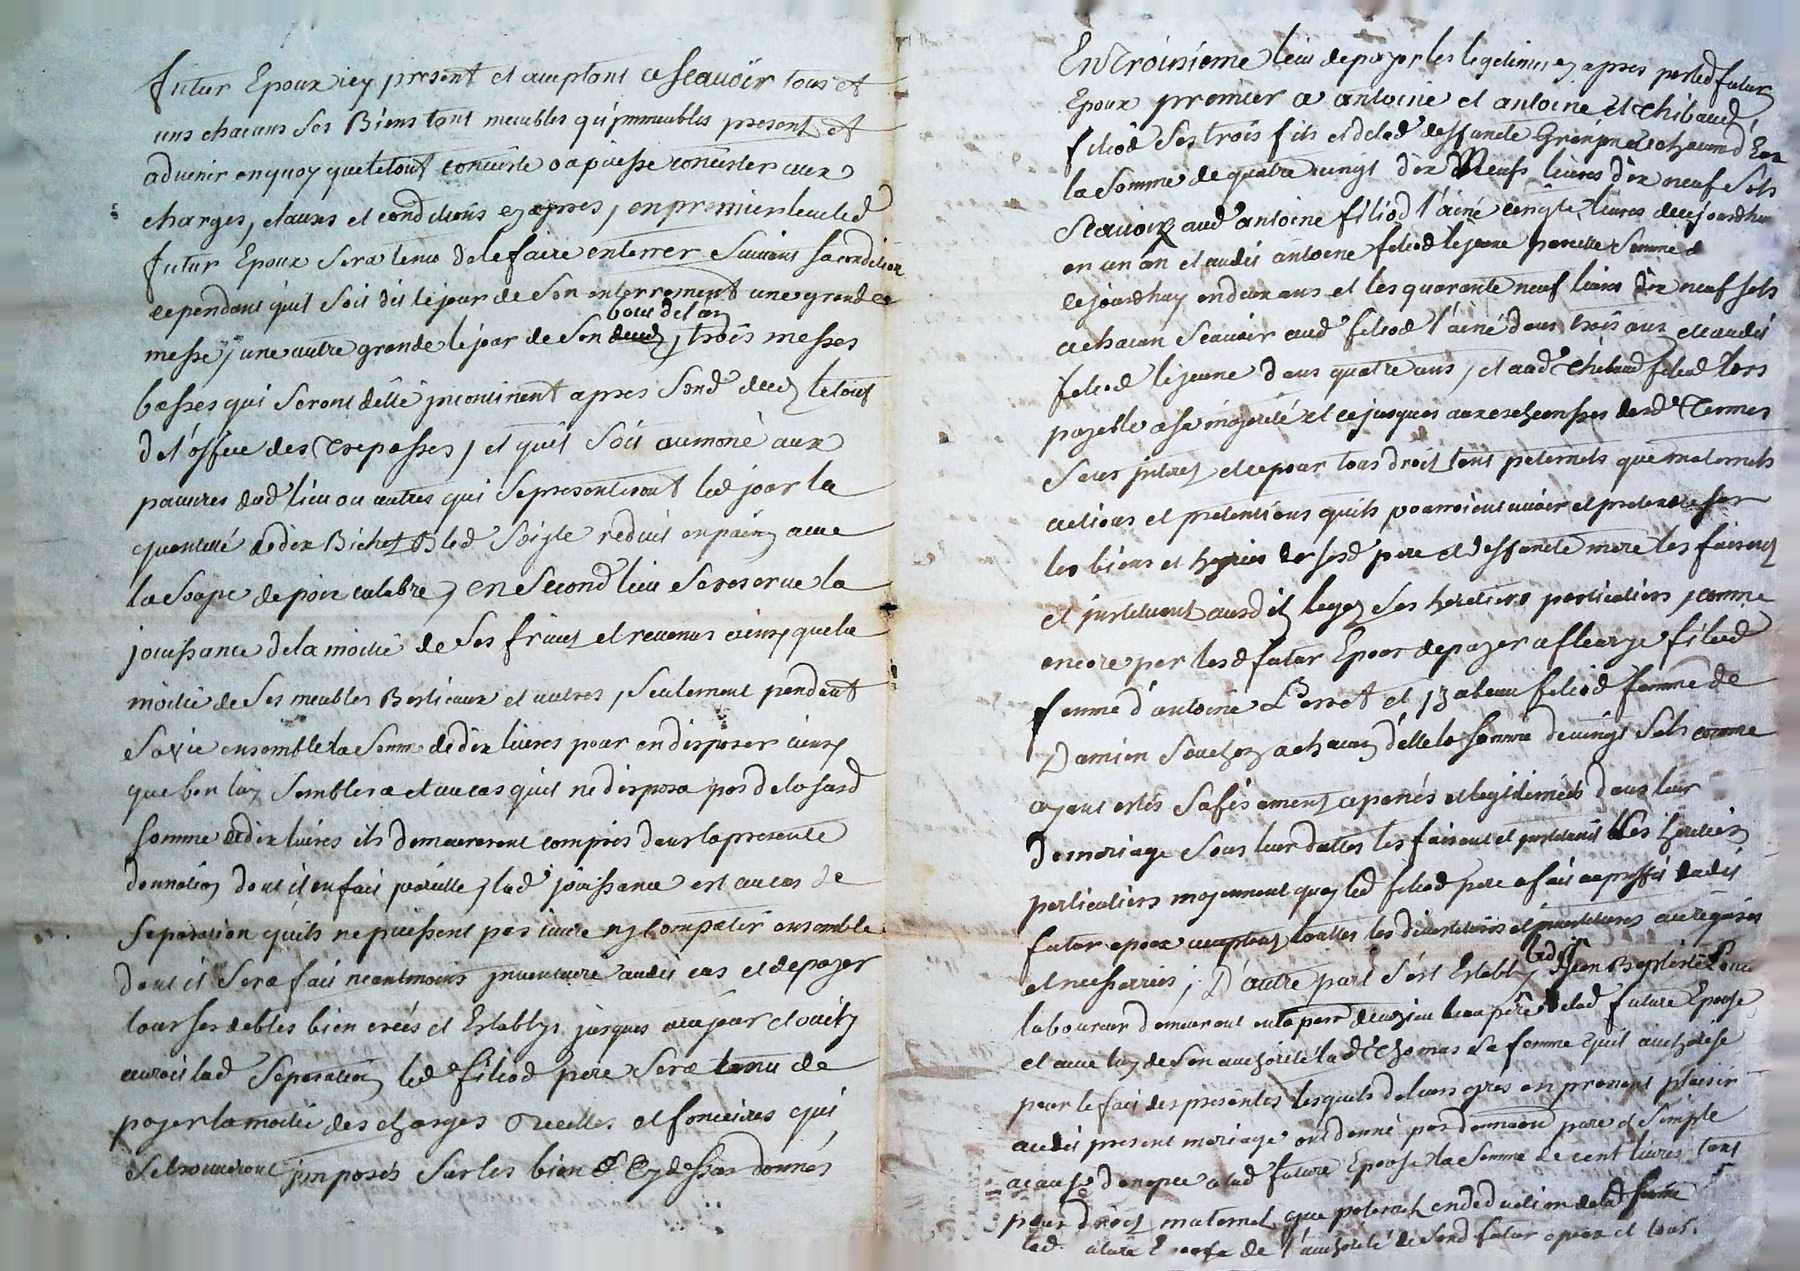 futur Epoux icy present et acceptant a Scavoir tous et
uns chacuns Ses Biens tant meubles qu'immeubles present et
advenir en quoy que le tout consiste ou puisse consister aux
charges, clauses et conditions cy apres, en premier lieu led
futur Epoux Sera tenu de le faire enterrer Suivant Sa condition
cependant quil Soit dit le jour de Son enterrement une grande
bout de l'an
messe, une autre grande le jour de Son, trois messes
basses qui Seront ditte incontinent apres Sond decez le tout
de l'office des Trepasses, et quil Soit aumoné aux
pauvres dud lieu ou autres qui Se presenteront led jour la
quantité de dix Bichet Bled Seigle reduit en pain avec
la Soupe, en Second lieu Se reserve la
jouissance de la moitié de Ses fruits et revenus ainsy que la
moitié de Ses meubles Bestieaux et autres, Seulement pendant
Sa vie ensemble la Somme de dix livres pour en disposer ainsy
que bon luy Semblera et au cas quil ne disposa pas de la Susd
Somme de dix livres ils demeureront compris dans la presente
donnation dont il en fait pareille, lad jouissance est au cas de
Separation quils ne puissent pas vivre ny Compatir ensemble
dont il Sera fait neantmoins inventaire audit cas et de payer
tous Ses debtes bien créés et Establys jusques au jour
lad Separation led filiod pere Sera tenu de
payer la moitié des charges Réelles et foncieres qui
Se trouveront imposés Sur les bien Cy dessus donnés
En Troisieme lieu de payer les legitimes cy apres par led futur
Epoux premier a antoine et antoine et Thibaud
filiod Ses trois fils et de lad deffuncte a chacun d'Eux
la Somme de quatre vingt dix Neufs livres dix neuf Sols
Scavoir aud antoine filiod l'ainé livres dece jourdhuy
en un an et audit antoine filiod le jeune pareille Somme de
cejourdhuy en deux ans et les quarante neuf livres dix neuf Sols
a chacun Scavoir aud filiod l'ainé dans trois ans et audit
filiod le jeune dans quatre ans, et aud Thibaud filiod lors
payable a Sa majorité et ce jusques aux desd Termes
Sans et ce pour tous droits tant paternels que maternels
actions et pretentions quils pourroient avoir et pretendre Sur
les biens et de Sesd pere et deffuncte mere les faisant
et instituant ausdits legez Ses heritiers particuliers, comme
encore par led futur Epoux de payer a fleurye filiod
femme d'antoine Perret et Izabeau filiod femme de
Damien Souchon a chacun d'elle la Somme de vingt Sols comme
ayant estés et legitimées dans leur
de mariage Sous leur dattes les faisant et instituant Ses heritiers
particuliers moyennant quoy led filiod pere a fait audit
futur epoux acceptant touttes les et investitures au requises
et necessaires; D'autre part S'est Estably Jean Baptiste
laboureur demeurant beau pere de lad future Epouse,
et avec luy de Son authorité lad Thomas Sa femme quil authorise
pour le fait des presentes lesquels de leurs gres en prenant plaisir
audit present mariage ont donné par donnaon pure et Simple
a cause de nopces a lad future Epouse la Somme de cent livres tant
pour droit maternel que paternel, en deduction de lad Somme
lad future Epouse de l'authorité de Sond futur epoux et tous.